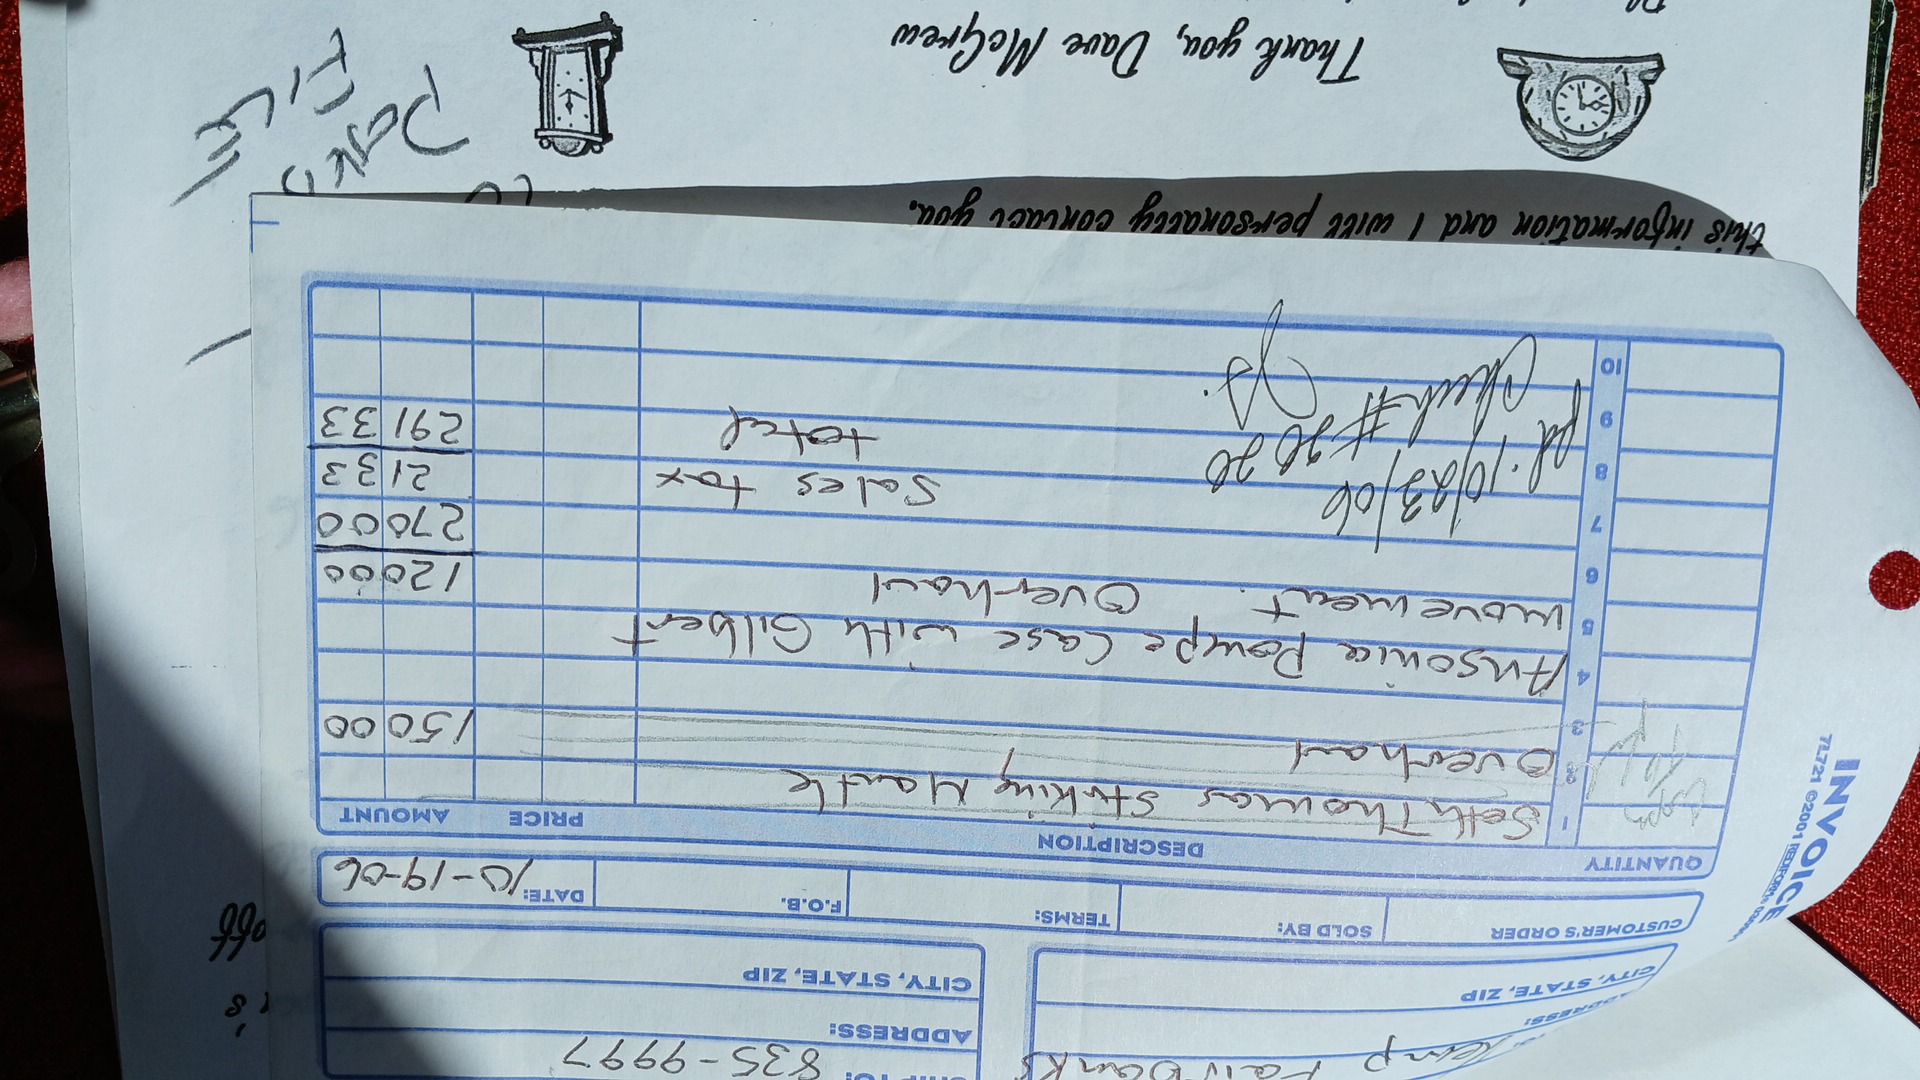 Kemp Fairbanks
835-9997
ADDRESS:
CITY, STATE, ZIP
CITY, STATE, ZIP
CUSTOMER'S ORDER
SOLD BY:
TERMS:
F.O.B.
DATE: 10-19-06
INVOICE
7L721 ©2001 REDIFORM®
QUANTITY DESCRIPTION PRICE AMOUNT
1 Seth Thomas Striking Mantle
2 Overhaul
3 150 00
4 Ansonia Pompe Case with Gilbert
5 movement. Overhaul 120 00
6 270 00
7 Sales tax 21 33
8 total 291 33
9
10
pd. 10/23/06
Check # 2020
this information and I will personally contact you.
Thank you, Dave McGrew
FILE